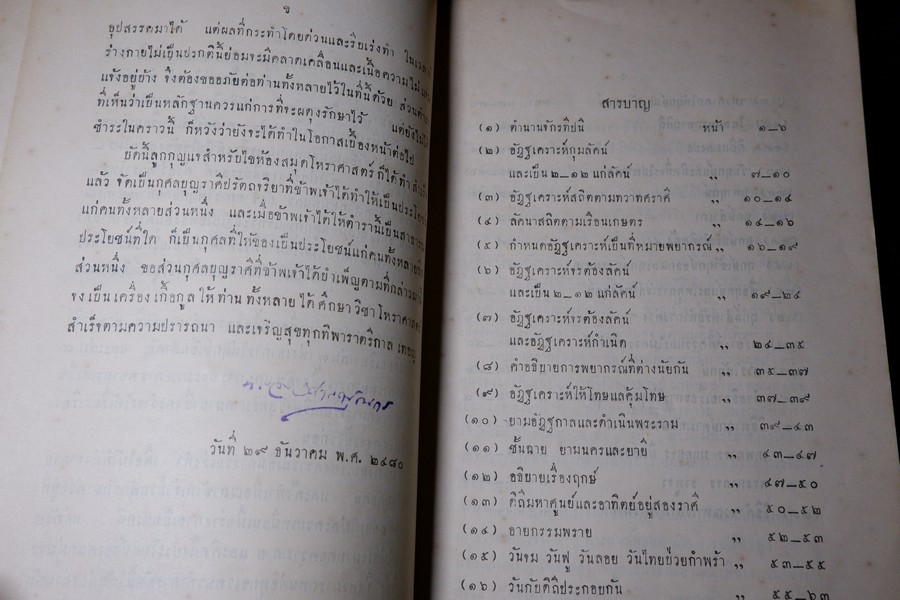 ข
อุปสรรคมาได้ แต่ผลที่กระทำโดยด่วนและรีบเร่งทำ ในเวลา
ร่างกายไม่เป็นปรกตินี้ย่อมจะมีคลาดเคลื่อนและเนื้อความไม่
แจ้งอยู่บ้าง จึงต้องขออภัยต่อท่านทั้งหลายไว้ในที่นี้ด้วย ส่วน
ที่เห็นว่าเป็นหลักฐานควรแก่การที่จะผดุงรักษาไว้ แต่ยังไม่
ชำระในคราวนี้ ก็หวังว่ายังจะได้ทำในโอกาสเบื้องหน้าต่อไป
บัดนี้ลูกกุญแจสำหรับไขห้องสมุดโหราศาสตร์ ก็ได้ทำ
แล้ว จัดเป็นกุศลบุญราศีปรัตถจริยาที่ข้าพเจ้าได้ทำให้เป็นประโยชน์
แก่คนทั้งหลายส่วนหนึ่ง และเมื่อข้าพเจ้าได้ให้ตำรานี้เป็น
ประโยชน์ที่ใด ก็เป็นกุศลที่ให้ของเป็นประโยชน์แก่คนทั้งหลาย
ส่วนหนึ่ง ขอส่วนกุศลบุญราศีที่ข้าพเจ้าได้บำเพ็ญตามที่กล่าวมา
จงเป็นเครื่องเกื้อกูลให้ท่านทั้งหลายได้ศึกษาวิชาโหราศาสตร์
สำเร็จตามความปรารถนา และเจริญสุขทุกทิพาราตริกาล เทอญ
วันที่ ๒๙ ธันวาคม พ.ศ. ๒๔๘๐
สารบาญ
(๑) ตำนานจักรทีปนี หน้า ๑_๖
(๒) อัฏฐเคราะห์กุมลัคน์
และเป็น ๒_๑๒ แก่ลัคน์ ,, ๗_๑๐
(๓) อัฏฐเคราะห์สถิตตามทวาทศราศี ,, ๑๐_๑๔
(๔) ลัคนาสถิตตามเรือนเกษตร ,, ๑๔_๑๖
(๕) กำหนดอัฏฐเคราะห์เป็นที่หมายพยากรณ์ ,, ๑๖_๑๙
(๖) อัฏฐเคราะห์จรต้องลัคน์
และเป็น ๒_๑๒ แก่ลัคน์ ,, ๑๙_๒๔
(๗) อัฏฐเคราะห์จรต้องลัคน์
และอัฏฐเคราะห์กำเนิด ,, ๒๔_๓๕
(๘) คำอธิบายการพยากรณ์ที่ต่างนัยกัน ,, ๓๕_๓๗
(๙) อัฏฐเคราะห์ให้โทษแลคุ้มโทษ ,, ๓๗_๓๙
(๑๐) ยามอัฏฐกาลและดำเนินพระราม ,, ๓๙_๔๓
(๑๑) ชั้นฉาย ยามนครและยายี ,, ๔๓_๔๗
(๑๒) อธิบายเรื่องฤกษ์ ,, ๔๗_๕๐
(๑๓) ดิถีมหาศูนย์และอาทิตย์อยู่สองราศี ,, ๕๐_๕๒
(๑๔) อายกรรมพราย ,, ๕๒_๕๓
(๑๕) วันจม วันฟู วันลอย วันไทยป่วยกำพร้า ,, ๕๓_๕๕
(๑๖) วันกับดิถีประกอบกัน ,, ๕๕_๖๓